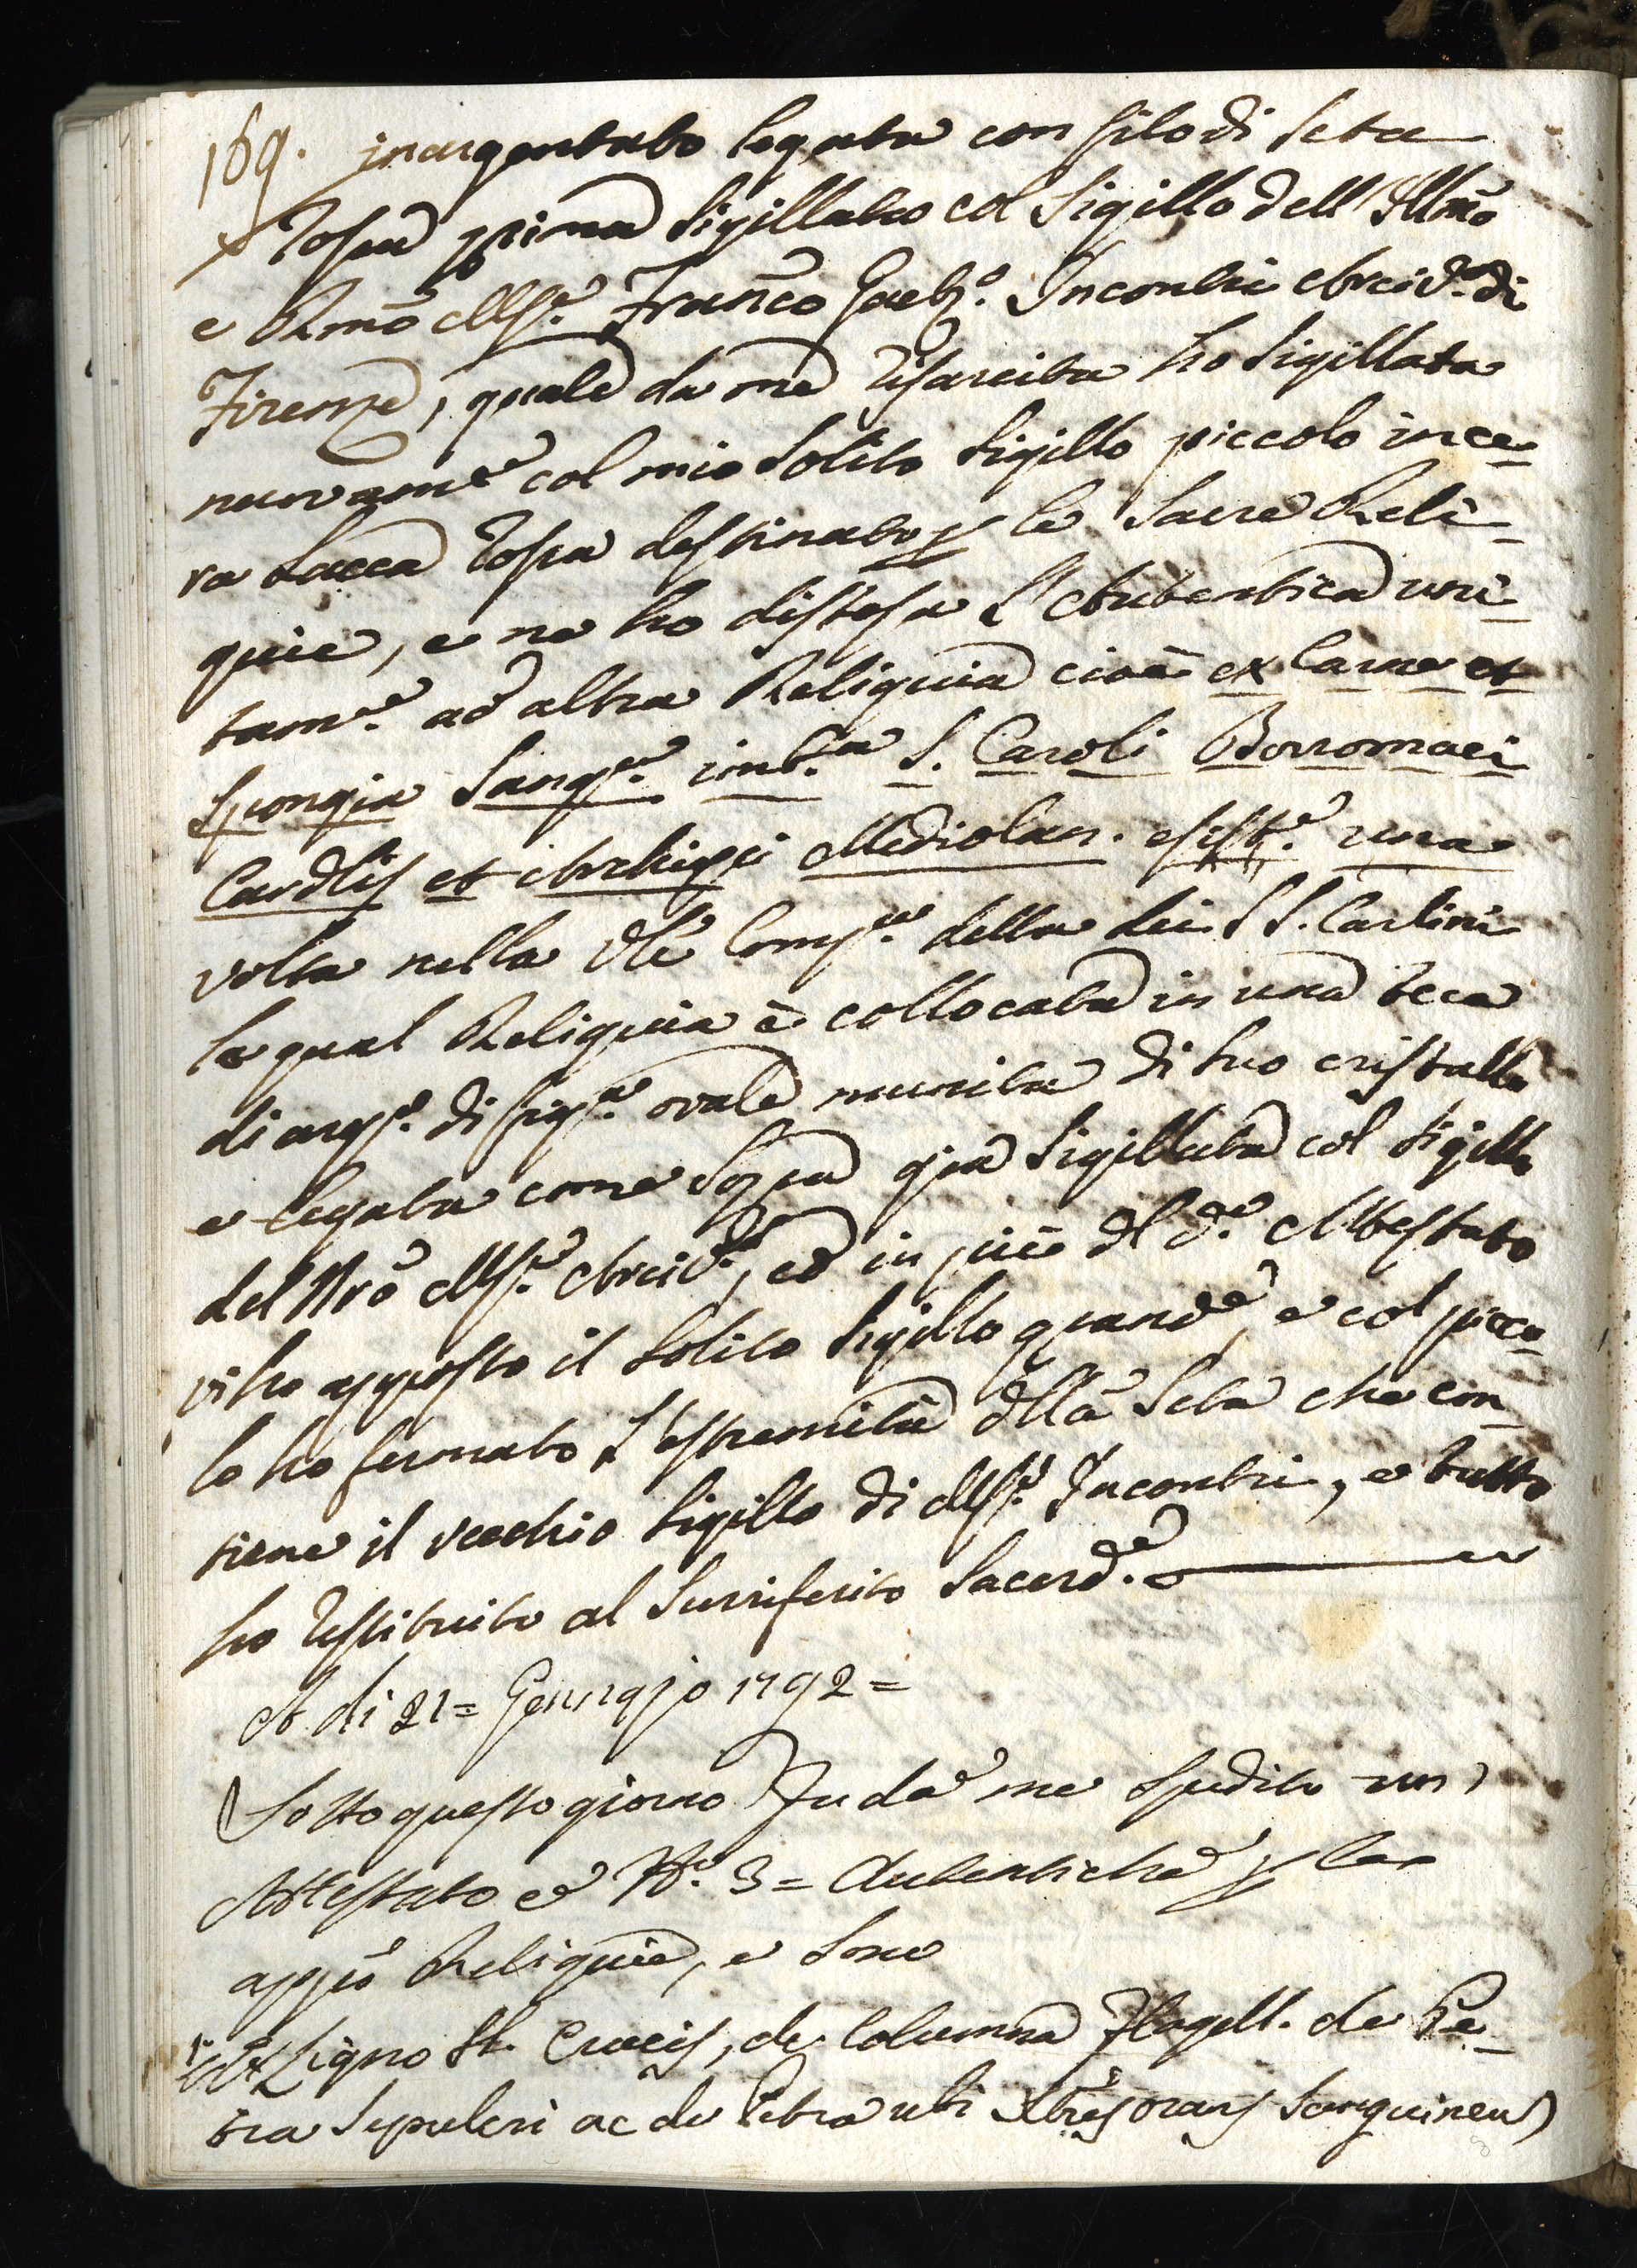 169. inargentato legata con filo di Seta
X Rossa prima Sigillata col Sigillo dell'Illmo
e Rmo Msr. Franco Gaeto. Incontri Arcivo. di
Firenze, quale da me risarcita ho Sigillata
nuovame. col mio Solito Sigillo piccolo in ce-
ra Lacca Rossa destinato p le Sacre Reli-
quie, e ne ho distesa l'Autentica uni-
tame. ad altra Reliquia cioè ex Carne et
Spongia Sangue. imba. S. Caroli Borromaei
Cardlis et Archiepi Mediolan. esiste. una
volta nella Vle Compa. detta dei SS. Carlini
la qual Reliquia è collocata in una teca
di argo. di figa. ovale munita di suo cristallo
e legata come Sopra già Sigillata col Sigillo
del Nro Msr. Arcivo, ed in piè dl do. Attestato
vi ho apposto il Solito Sigillo grande, e col picco-
lo ho fermato l'estremità dlla Seta che con-
tiene il vecchio Sigillo di Msr. Incontri, e tutto
ho restituito al Surriferito Sacerde.
A di 21 = Gennajo 1792 =
Sotto questo giorno Fu da me Spedito un
Attestato e No. 3 = Autentiche p le
appo Reliquie, e Sono
1a. Ex Ligno St. Crucis, de Columna Flagell. de Pe-
tra Sepulcri ac de Petra ubi Xtus orans Sanguineu